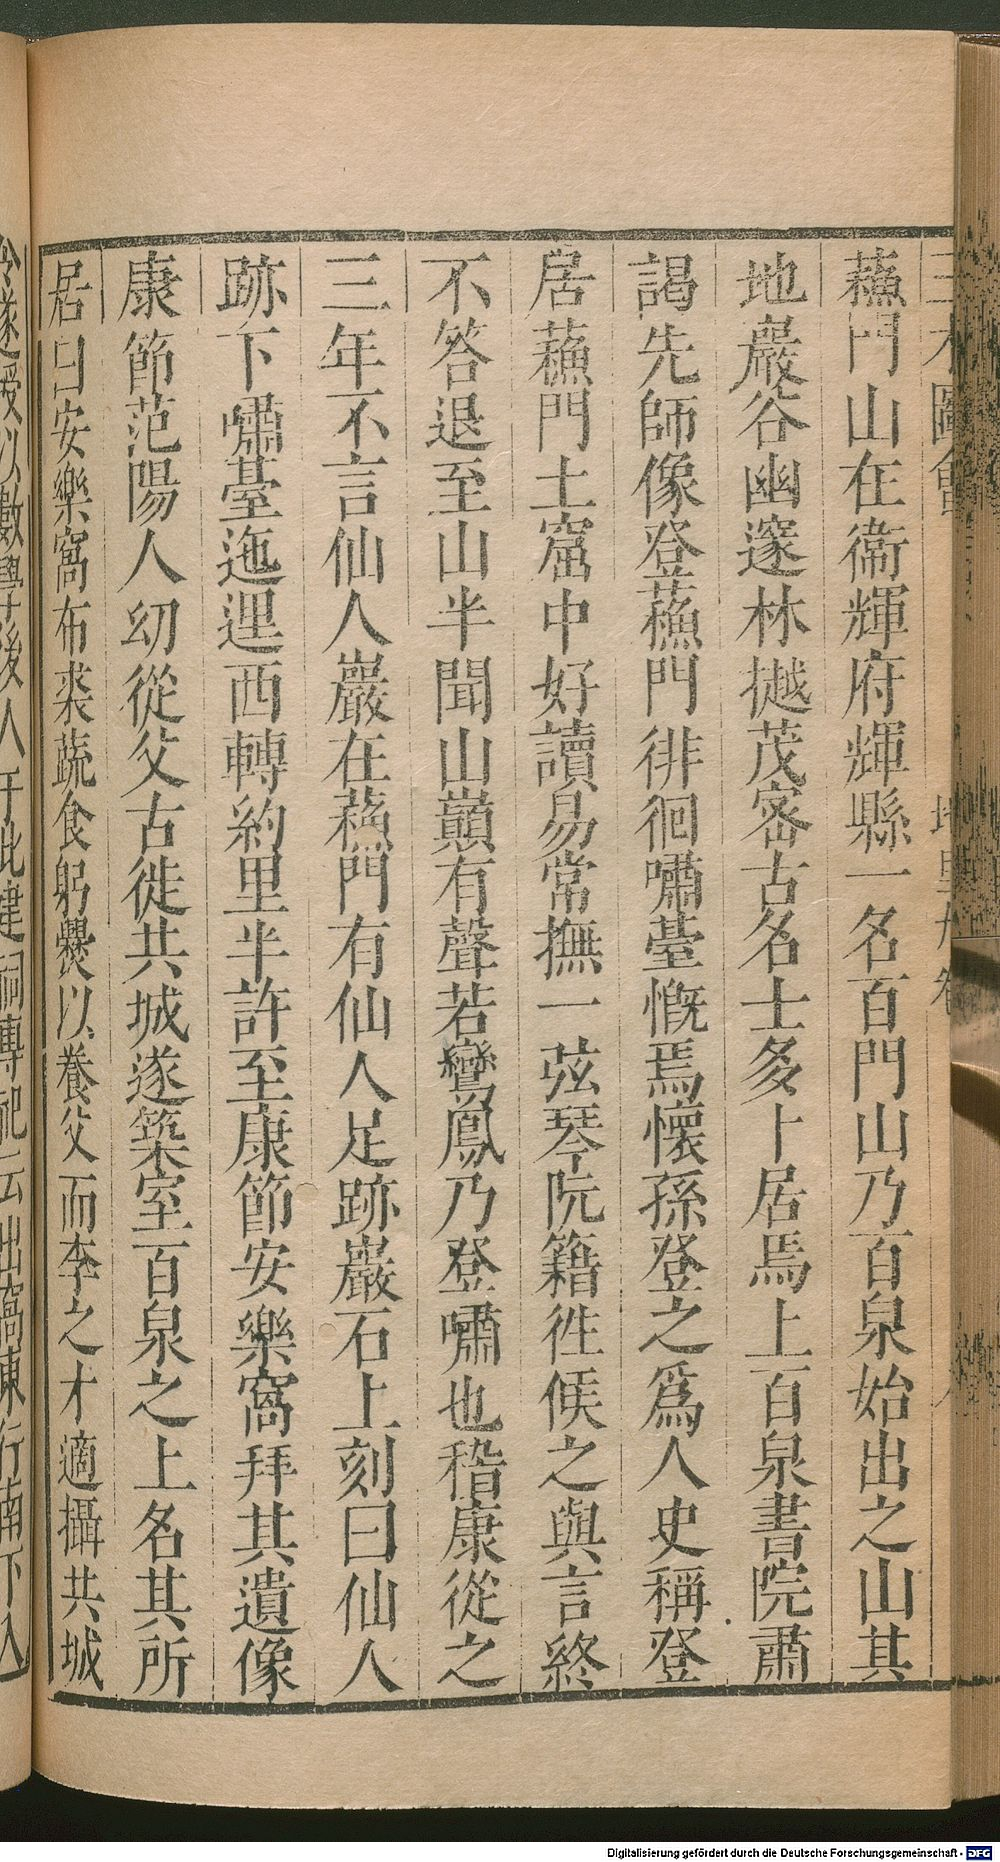 三才圖會 地理九卷
蘓門山在衞輝府輝縣一名百門山乃百泉始出之山其
地巖谷幽邃林樾茂宻古名士多卜居焉上百泉書院肅
謁先師像登蘓門徘徊嘯臺慨焉懷孫登之爲人史稱登
居蘓門土窟中好讀易常撫一弦琴阮籍徃候之與言終
不答退至山半聞山巔有聲若鸞鳳乃登嘯也稽康從之
三年不言仙人巖在蘓門有仙人足跡巖石上刻曰仙人
跡下嘯臺迤邐西轉約里半許至康節安樂窩拜其遺像
康節范陽人㓜從父古徙共城遂築室百泉之上名其所
居曰安樂窩布裘蔬食躬爨以養父而李之才適攝共城
令遂受以數學後人于此建祠專祀云出窩東行南下入
Digitalisierung gefördert durch die Deutsche Forschungsgemeinschaft - DFG